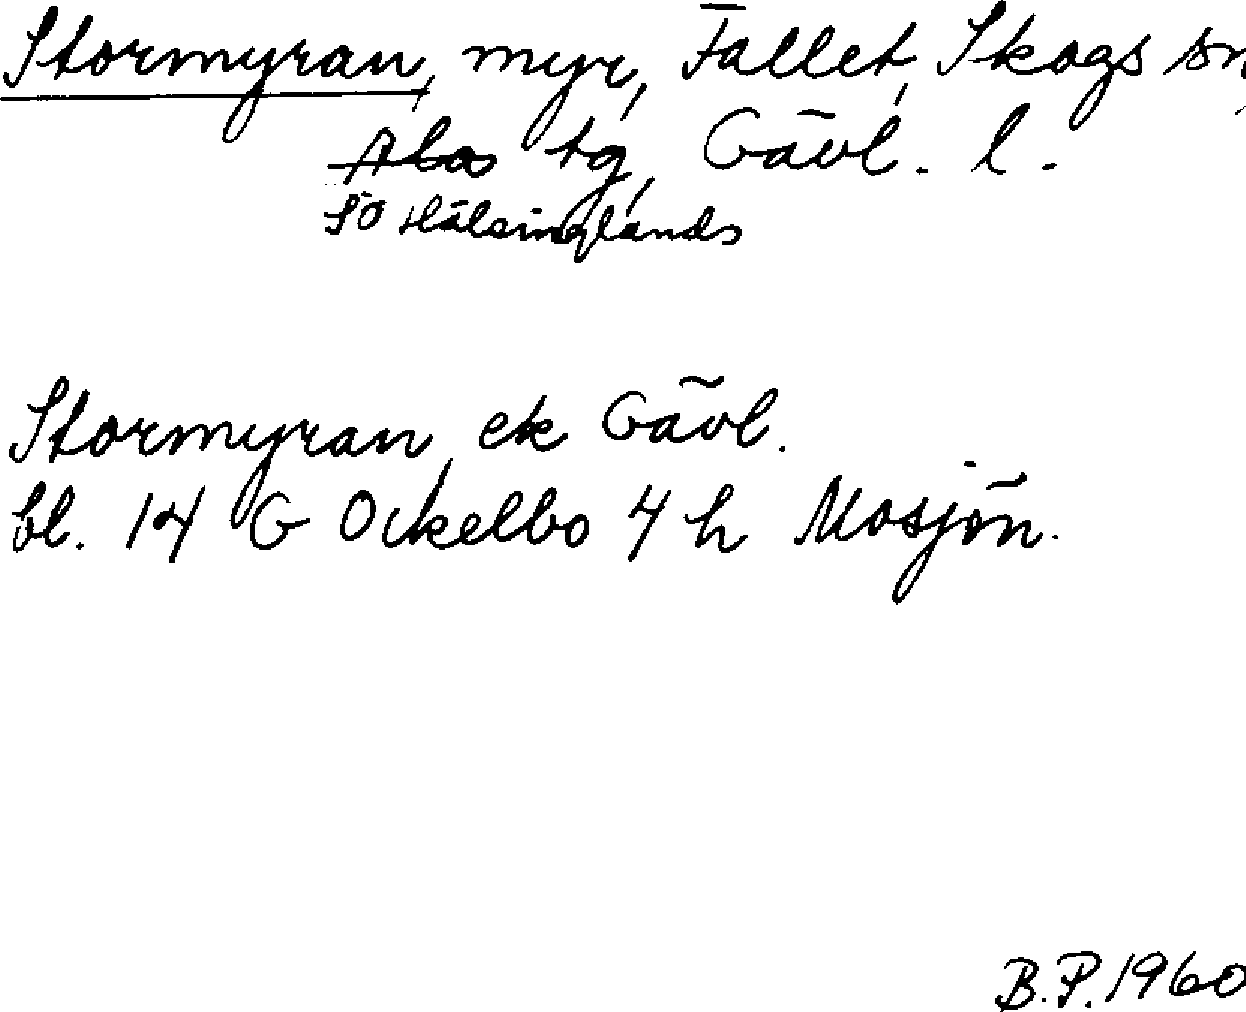 Stormyran, myr, Fallet, Skogs sn,
Ala tg, Gävl. l.
SÖ Hälsinglands
Stormyran, ek Gävl.
bl. 14 G Ockelbo 4 h Mosjön.
B.P. 1960